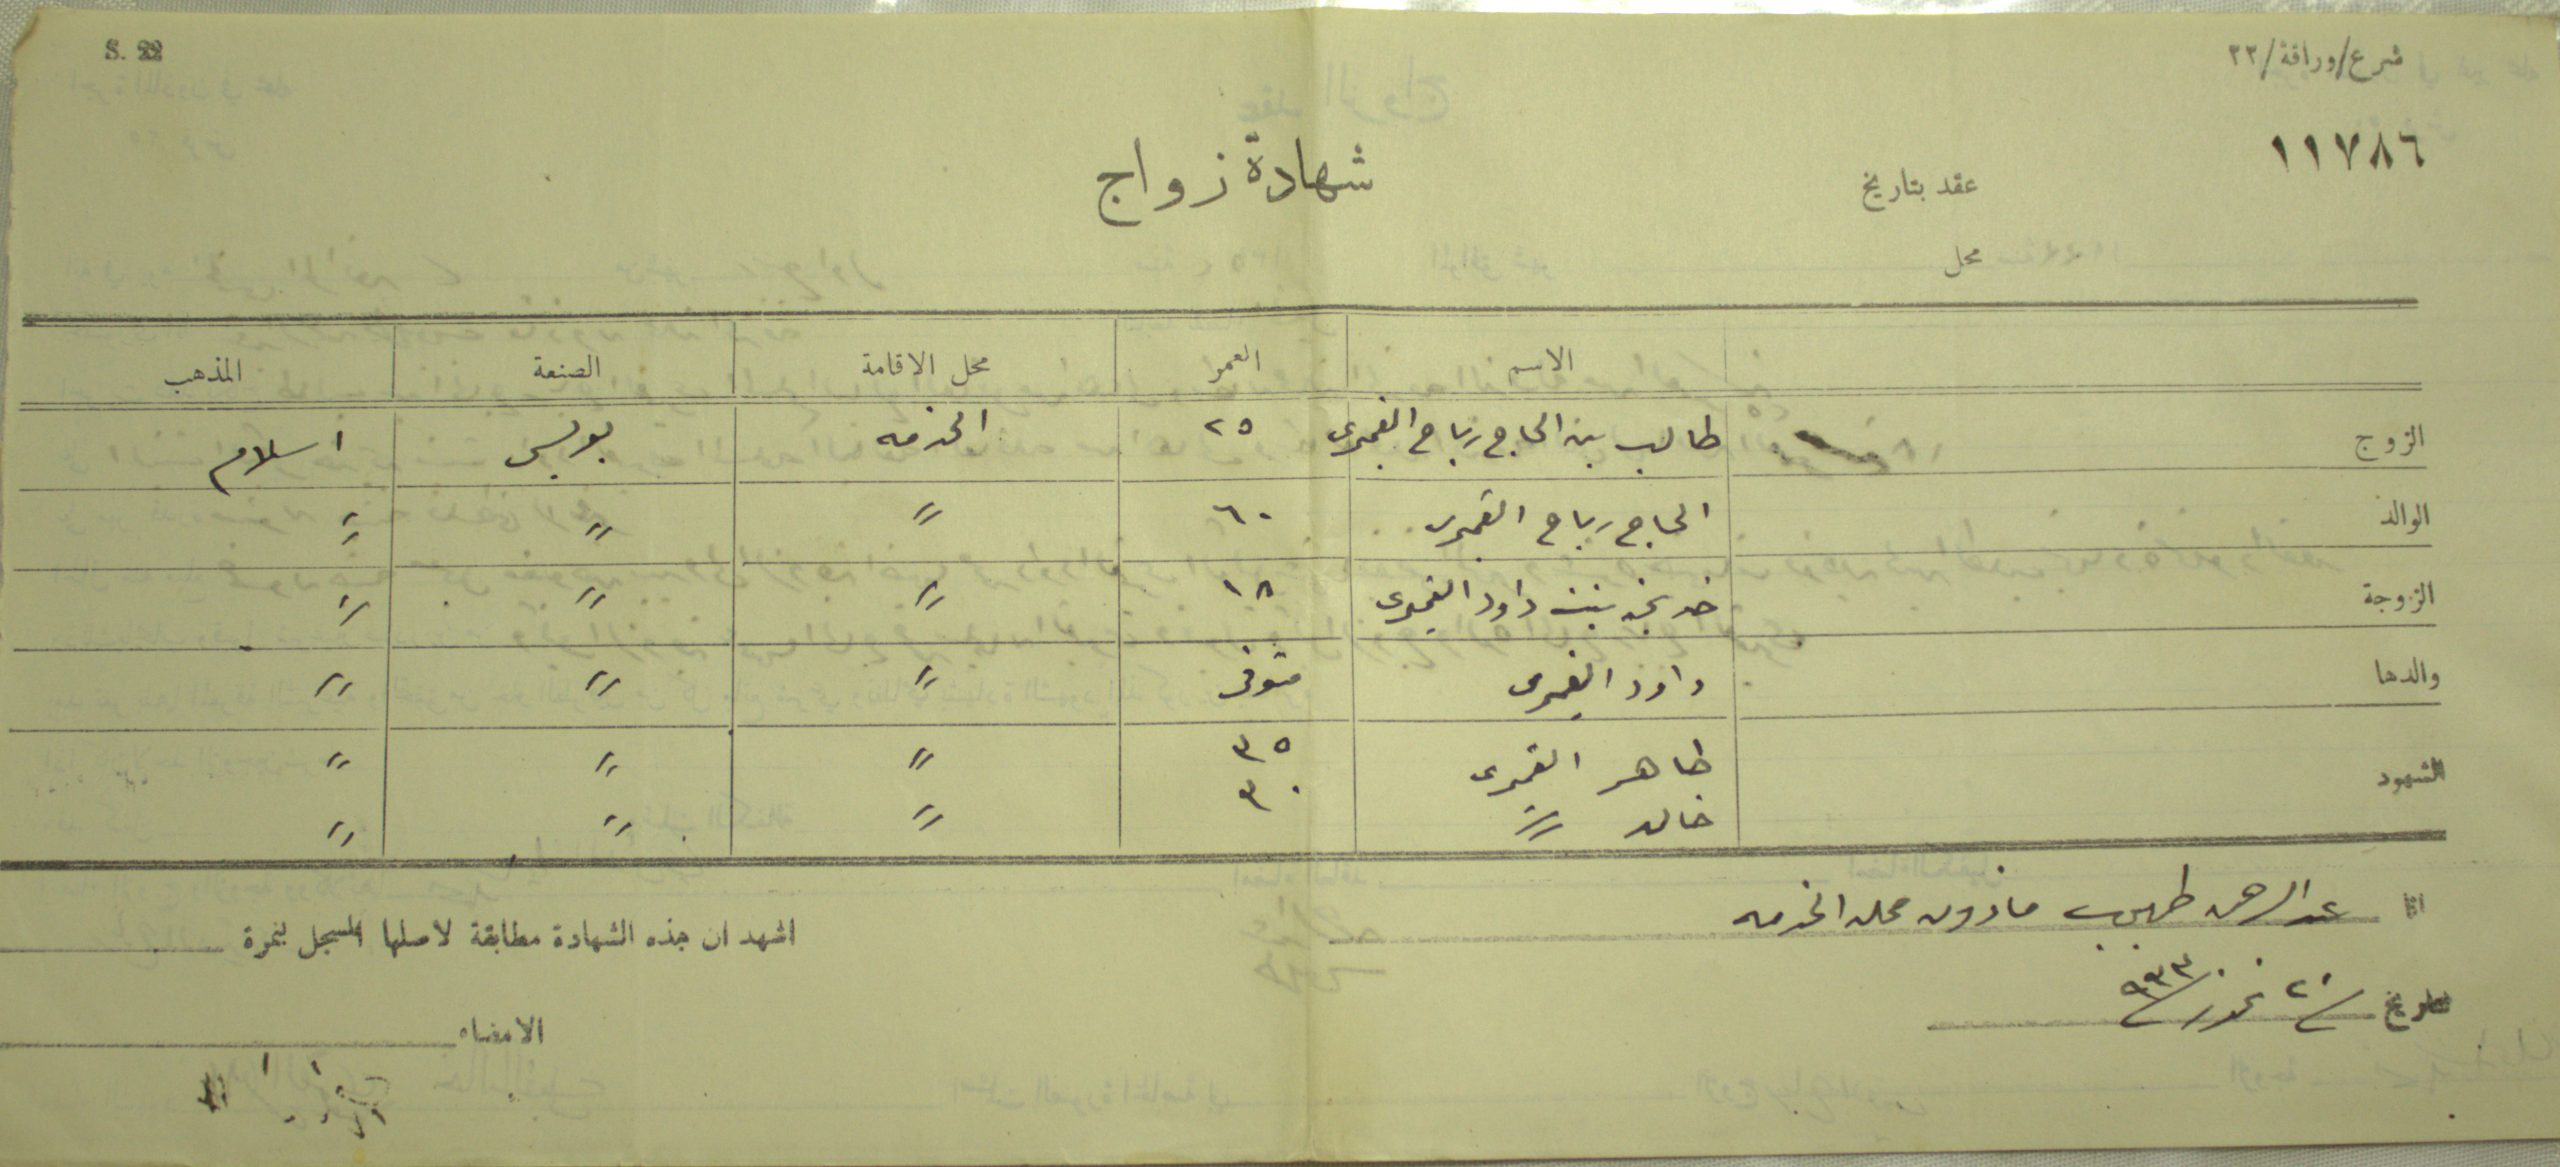 S. 22
شرع/وراقة/٢٢
١١٧٨٦
شهادة زواج
عقد بتاريخ
محل
الاسم العمر محل الاقامة الصنعة المذهب
الزوج طالب بن الحاج رباح القمبري ٢٥ الخزمه بوليس اسلام
الوالد الحاج رباح القمبري ٦٠ " " "
الزوجة خديجه بنت داود القمبري ١٨ " " "
والدها داود القمبري متوفى " " "
الشهود طاهر القمبري ٣٥ " " "
خالد " ٣٠ " " "
انا عبد الرحمن طهبوب مأذون محلة الخزمه
اشهد ان هذه الشهادة مطابقة لاصلها المسجل بنمرة
تاريخ ٢٠/ تموز/ ٩٣٣
الامضاء